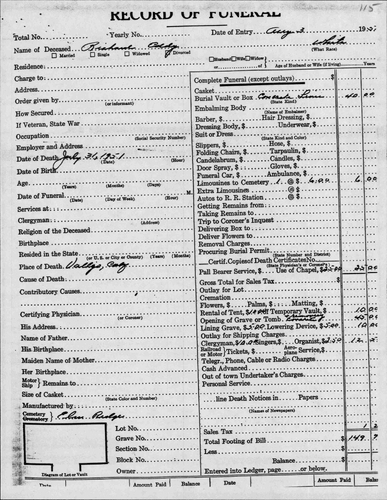 RECORD OF FUNERAL
115
Total No. Yearly No. Date of Entry Aug 3 195
Name of Deceased Richard White
Married Single Widowed Divorced Husband Wife Widow (What Race)
Residence: or Age of Husband or Wife (if living)
Charge to Complete Funeral (except outlays) $
Address Casket
Order given by Burial Vault or Box Concrete 40 00
(or informant) (State Kind)
How Secured Embalming Body
If Veteran, State War Barber, $ Hair Dressing, $
Dressing Body, $ Underwear, $
Occupation Suit or Dress
(Social Security Number) (State Kind and Color)
Employer and Address Slippers, $ Hose, $
Date of Death July 31 1951 Folding Chairs, $ Tarpaulin, $
(Date) (Hour) Candelabrum, $ Candles, $
Date of Birth Door Spray, $ Gloves, $
Age Funeral Car, $ Ambulance, $
(Years) (Months) (Days) Limousines to Cemetery 1 @ $ 6.00 6 00
Date of Funeral M. Extra Limousines @ $
(Date) (Day of Week) (Hour) Autos to R. R. Station @ $
Services at Getting Remains from
Clergyman Taking Remains to
(Address) Trip to Coroner's Inquest
Religion of the Deceased Delivering Box to
Birthplace Deliver Flowers to
Removal Charges
Resided in the State Procuring Burial Permit
(or U. S. or City or County) (Years) (Months) (State Number and District)
Place of Death Certif. Copies of Death Certificates No.
(State Physician's or County)
Cause of Death Pall Bearer Service, $ Use of Chapel, $25.00 25 00
Contributory Causes Gross Total for Sales Tax $
Outlay for Lot
Cremation
Certifying Physician Flowers, $ Palms, $ Matting, $
(or Coroner) Rental of Tent, $10.00 Temporary Vault, $ 10 00
His Address Opening of Grave or Tomb 45 00
Name of Father Lining Grave, $5.00 Lowering Device, $5.00 10 00
Outlay for Shipping Charges
His Birthplace Clergyman, $ Singers, $ Organist, $ 12
Maiden Name of Mother Railroad or Motor Tickets, $ Aeroplane Service, $
Her Birthplace Telegr., Phone, Cable or Radio Charges
Cash Advanced
Motor Ship Remains to Out of town Undertaker's Charges
Size of Casket Personal Service
(State Color and Number)
Manufactured by line Death Notices in Papers
Cemetery Crematory Glen Ridge (Names of Newspapers)
Lot No.
Grave No. Sales Tax
Section No. Total Footing of Bill $ 149
Block No. Balance $
Diagram of Lot or Vault Owner Entered into Ledger, page or below.
Date Amount Paid Balance Date Amount Paid Balance